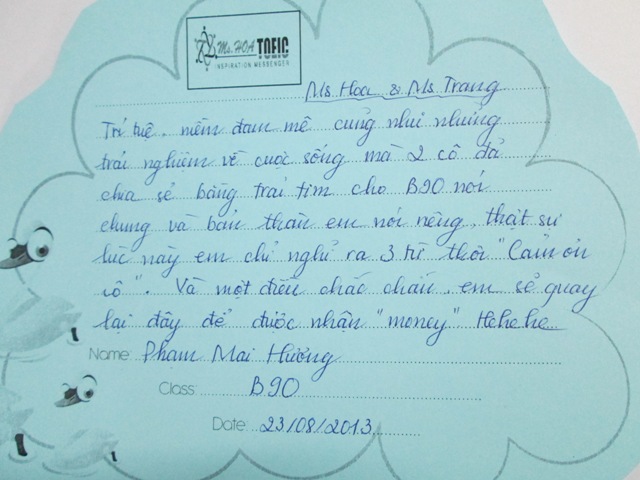 Ms. HOA TOEIC
INSPIRATION MESSENGER
Ms. Hoa & Ms. Trang
Trí tuệ, niềm đam mê cũng như những
trải nghiệm về cuộc sống mà 2 cô đã
chia sẻ bằng trái tim cho B90 nói
chung và bản thân em nói riêng, thật sự
lúc này em chỉ nghĩ ra 3 từ thôi "Cảm ơn
cô". Và một điều chắc chắn, em sẽ quay
lại đây để được nhận "money" Hehehe
Name: Phạm Mai Hương
Class: B90
Date: 23/08/2013